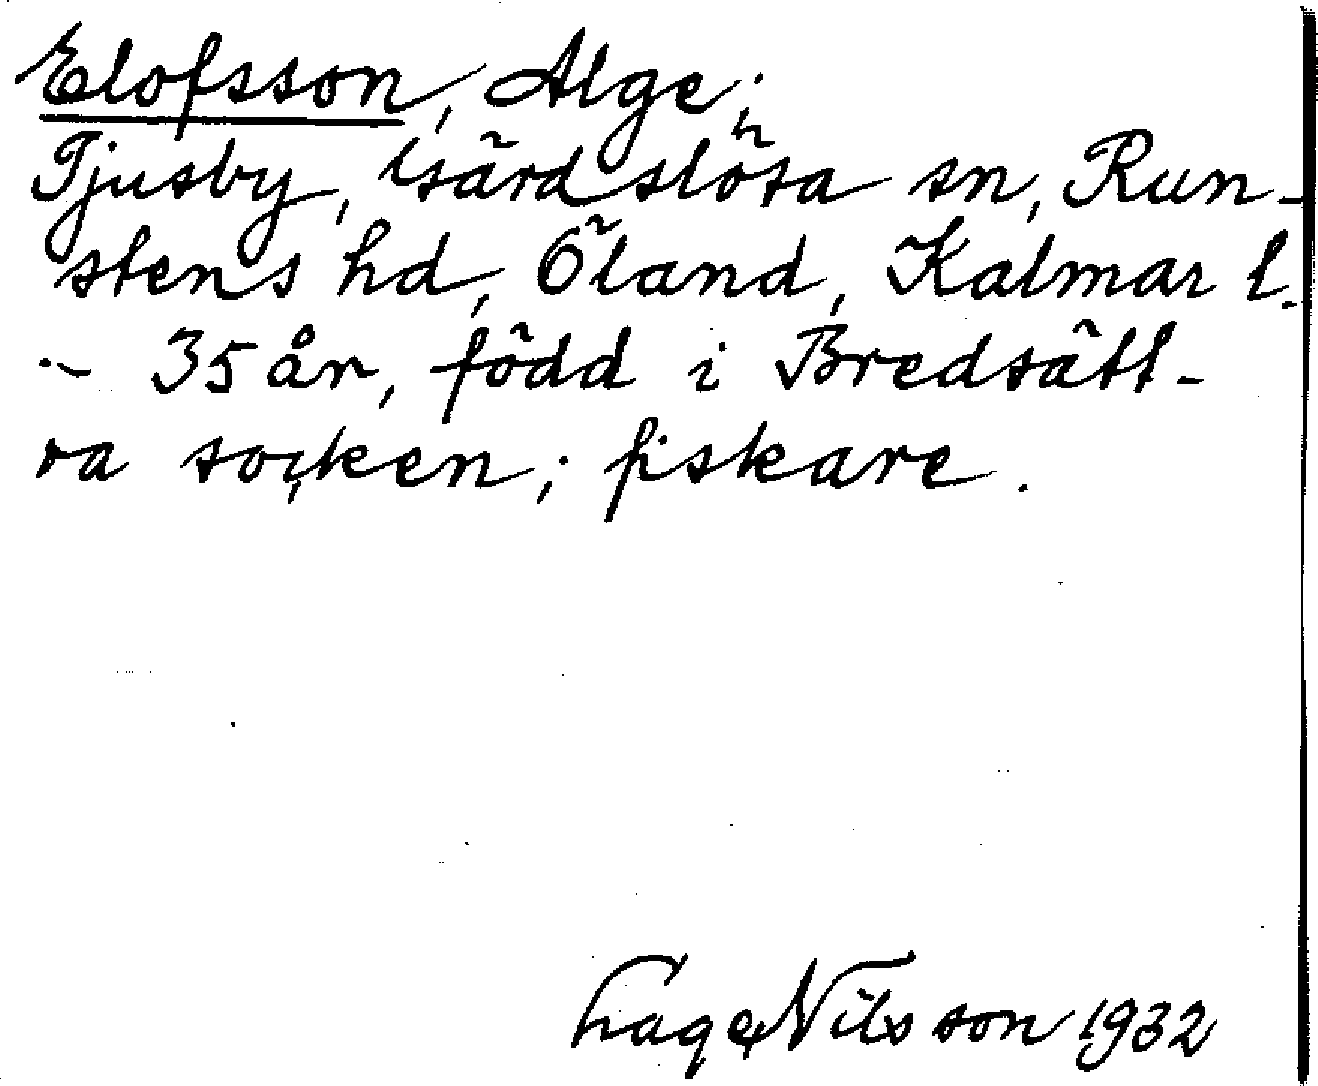 Elofsson, Alge;
Tjusby, Gärdslösa sn, Run-
stens hd, Öland, Kalmar l.
– 35 år, född i Bredsätt-
ra socken; fiskare.
Nilsson 1932